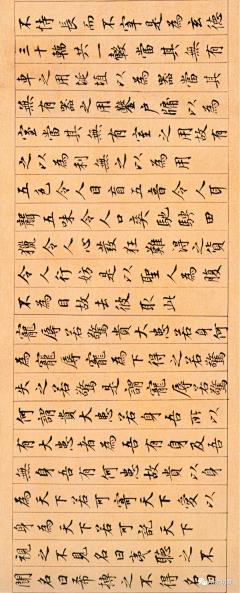 不恃長而不宰是為玄德
三十輻共一轂當其無有
車之用埏埴以為器當其
無有器之用鑿戶牖以為
室當其無有室之用故有
之以為利無之以為用
五色令人目盲五音令人耳
聾五味令人口爽馳騁田
獵令人心發狂難得之貨
令人行妨是以聖人為腹
不為目故去彼取此
寵辱若驚貴大患若身何
為寵辱寵為下得之若驚
失之若驚是謂寵辱若驚
何謂貴大患若身吾所以
有大患者為吾有身及吾
無身吾有何患故貴以身
為天下若可寄天下愛以
身為天下若可託天下
視之不見名曰夷聽之不
聞名曰希搏之不得名曰